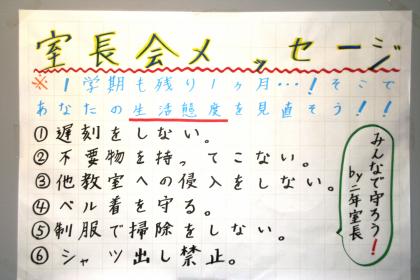 室長会メッセージ
※1学期も残り1ヶ月…!そこで
あなたの生活態度を見直そう!!
①遅刻をしない。
②不要物を持ってこない。
③他教室への侵入をしない。
④ベル着を守る。
⑤制服で掃除をしない。
⑥シャツ出し禁止。
みんなで守ろう!
by二年室長